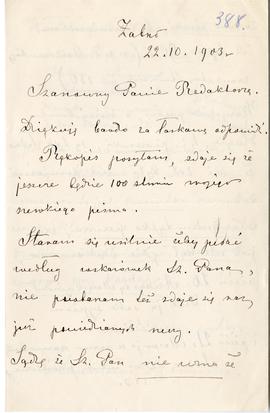 388.
Zalno
22.10.1903 r
Szanowny Panie Redaktorze.
Dziękuję bardo za łaskawą odpowiedź.
Rękopis posyłam, zdaje się że
jeszcze będzie 100 stronic mojego
szewskiego pisma.
Staram się usilnie żeby pisać
według wskazówek Sz. Pana,
nie powstanam też zdaje się raz
już powiedzianych rzeczy.
Sądzę że Sz. Pan nie uzna że